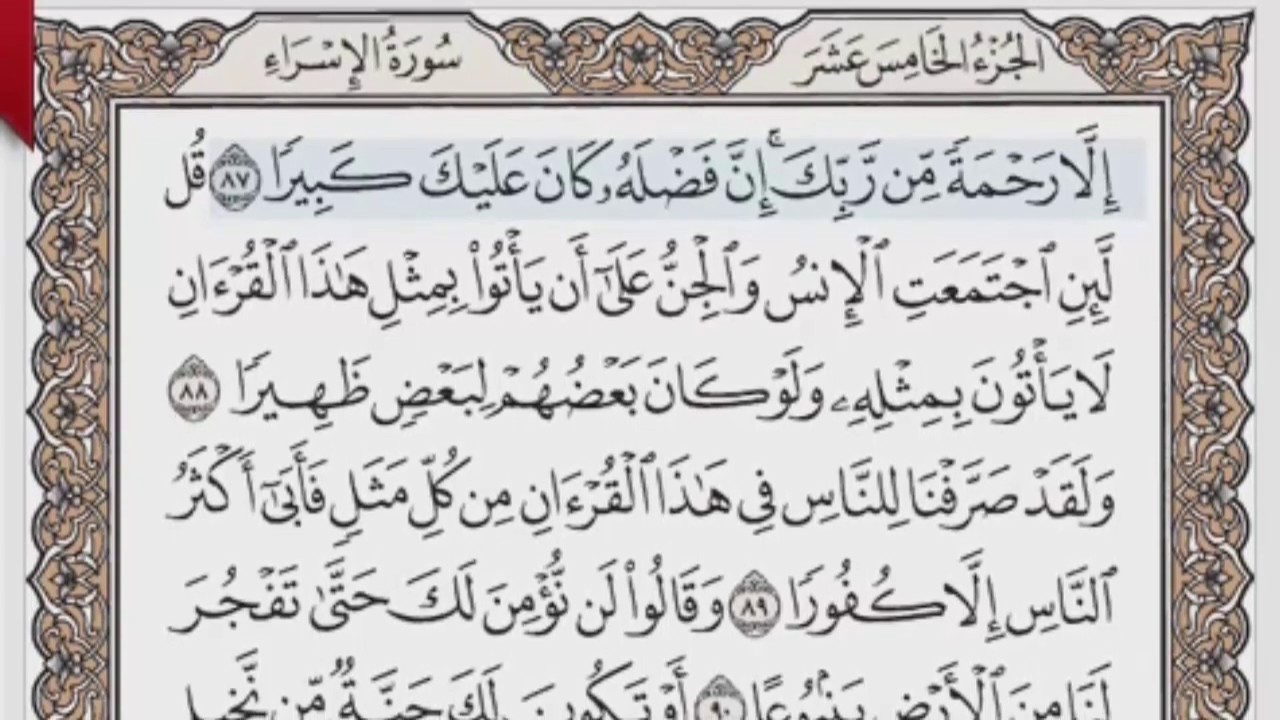 الجُزْءُ الخَامِسَ عَشَرَ
سُورَةُ الإِسْرَاءِ
إِلَّا رَحْمَةً مِّن رَّبِّكَ ۚ إِنَّ فَضْلَهُۥ كَانَ عَلَيْكَ كَبِيرًا ٨٧ قُل
لَّئِنِ ٱجْتَمَعَتِ ٱلْإِنسُ وَٱلْجِنُّ عَلَىٰٓ أَن يَأْتُوا۟ بِمِثْلِ هَـٰذَا ٱلْقُرْءَانِ
لَا يَأْتُونَ بِمِثْلِهِۦ وَلَوْ كَانَ بَعْضُهُمْ لِبَعْضٍ ظَهِيرًا ٨٨
وَلَقَدْ صَرَّفْنَا لِلنَّاسِ فِى هَـٰذَا ٱلْقُرْءَانِ مِن كُلِّ مَثَلٍ فَأَبَىٰٓ أَكْثَرُ
ٱلنَّاسِ إِلَّا كُفُورًا ٨٩ وَقَالُوا۟ لَن نُّؤْمِنَ لَكَ حَتَّىٰ تَفْجُرَ
لَنَا مِنَ ٱلْأَرْضِ يَنۢبُوعًا ٩٠ أَوْ تَكُونَ لَكَ جَنَّةٌ مِّن نَّخِيلٍ